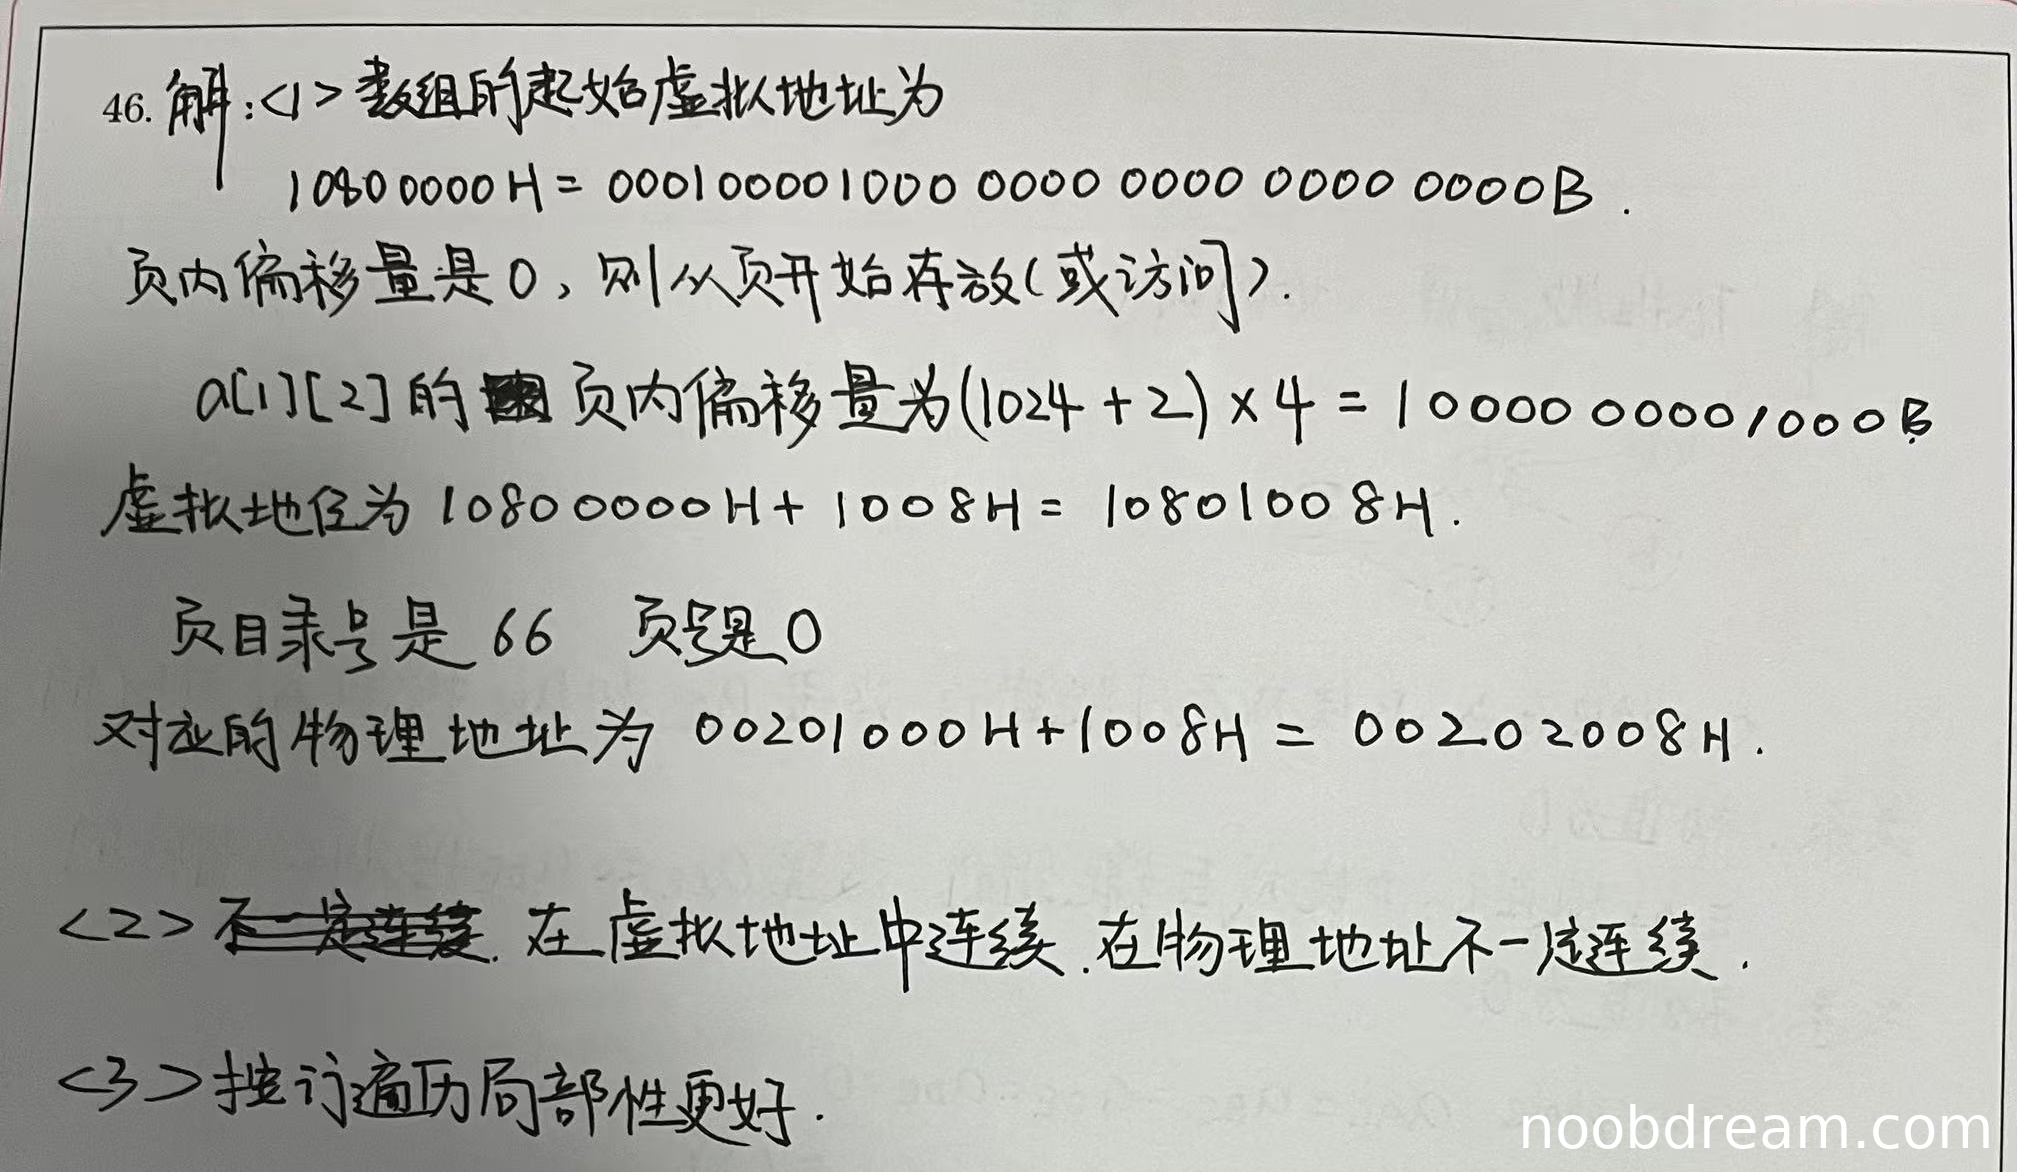 46. 解:<1>数组的起始虚拟地址为
10800000H = 000100001000 0000 0000 0000 0000B.
页内偏移量是0,则从页开始存放(或访问).
a[1][2]的页内偏移量为(1024+2)×4 = 1000000001000B
虚拟地址为 10800000H + 1008H = 10801008H.
页目录号是 66 页号是0
对应的物理地址为 00201000H+1008H = 00202008H.
<2> 不一定连续. 在虚拟地址中连续.在物理地址不一定连续.
<3>按行遍历局部性更好.
noobdream.com